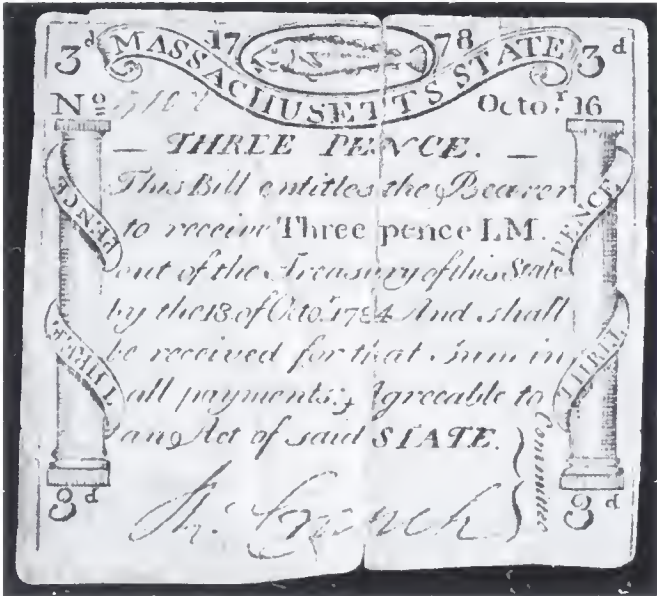 3d 17 78 3d
MASSACHUSETTS STATE
No Octor 16
— THREE PENCE. —
This Bill entitles the Bearer
to receive Three pence LM.
out of the Treasury of this State
by the 18. of Octor. 1784 And shall
be received for that Sum in
all payments; Agreeable to
an Act of said STATE.
PENCE
THREE
PENCE
THREE
Committee
3d 3d